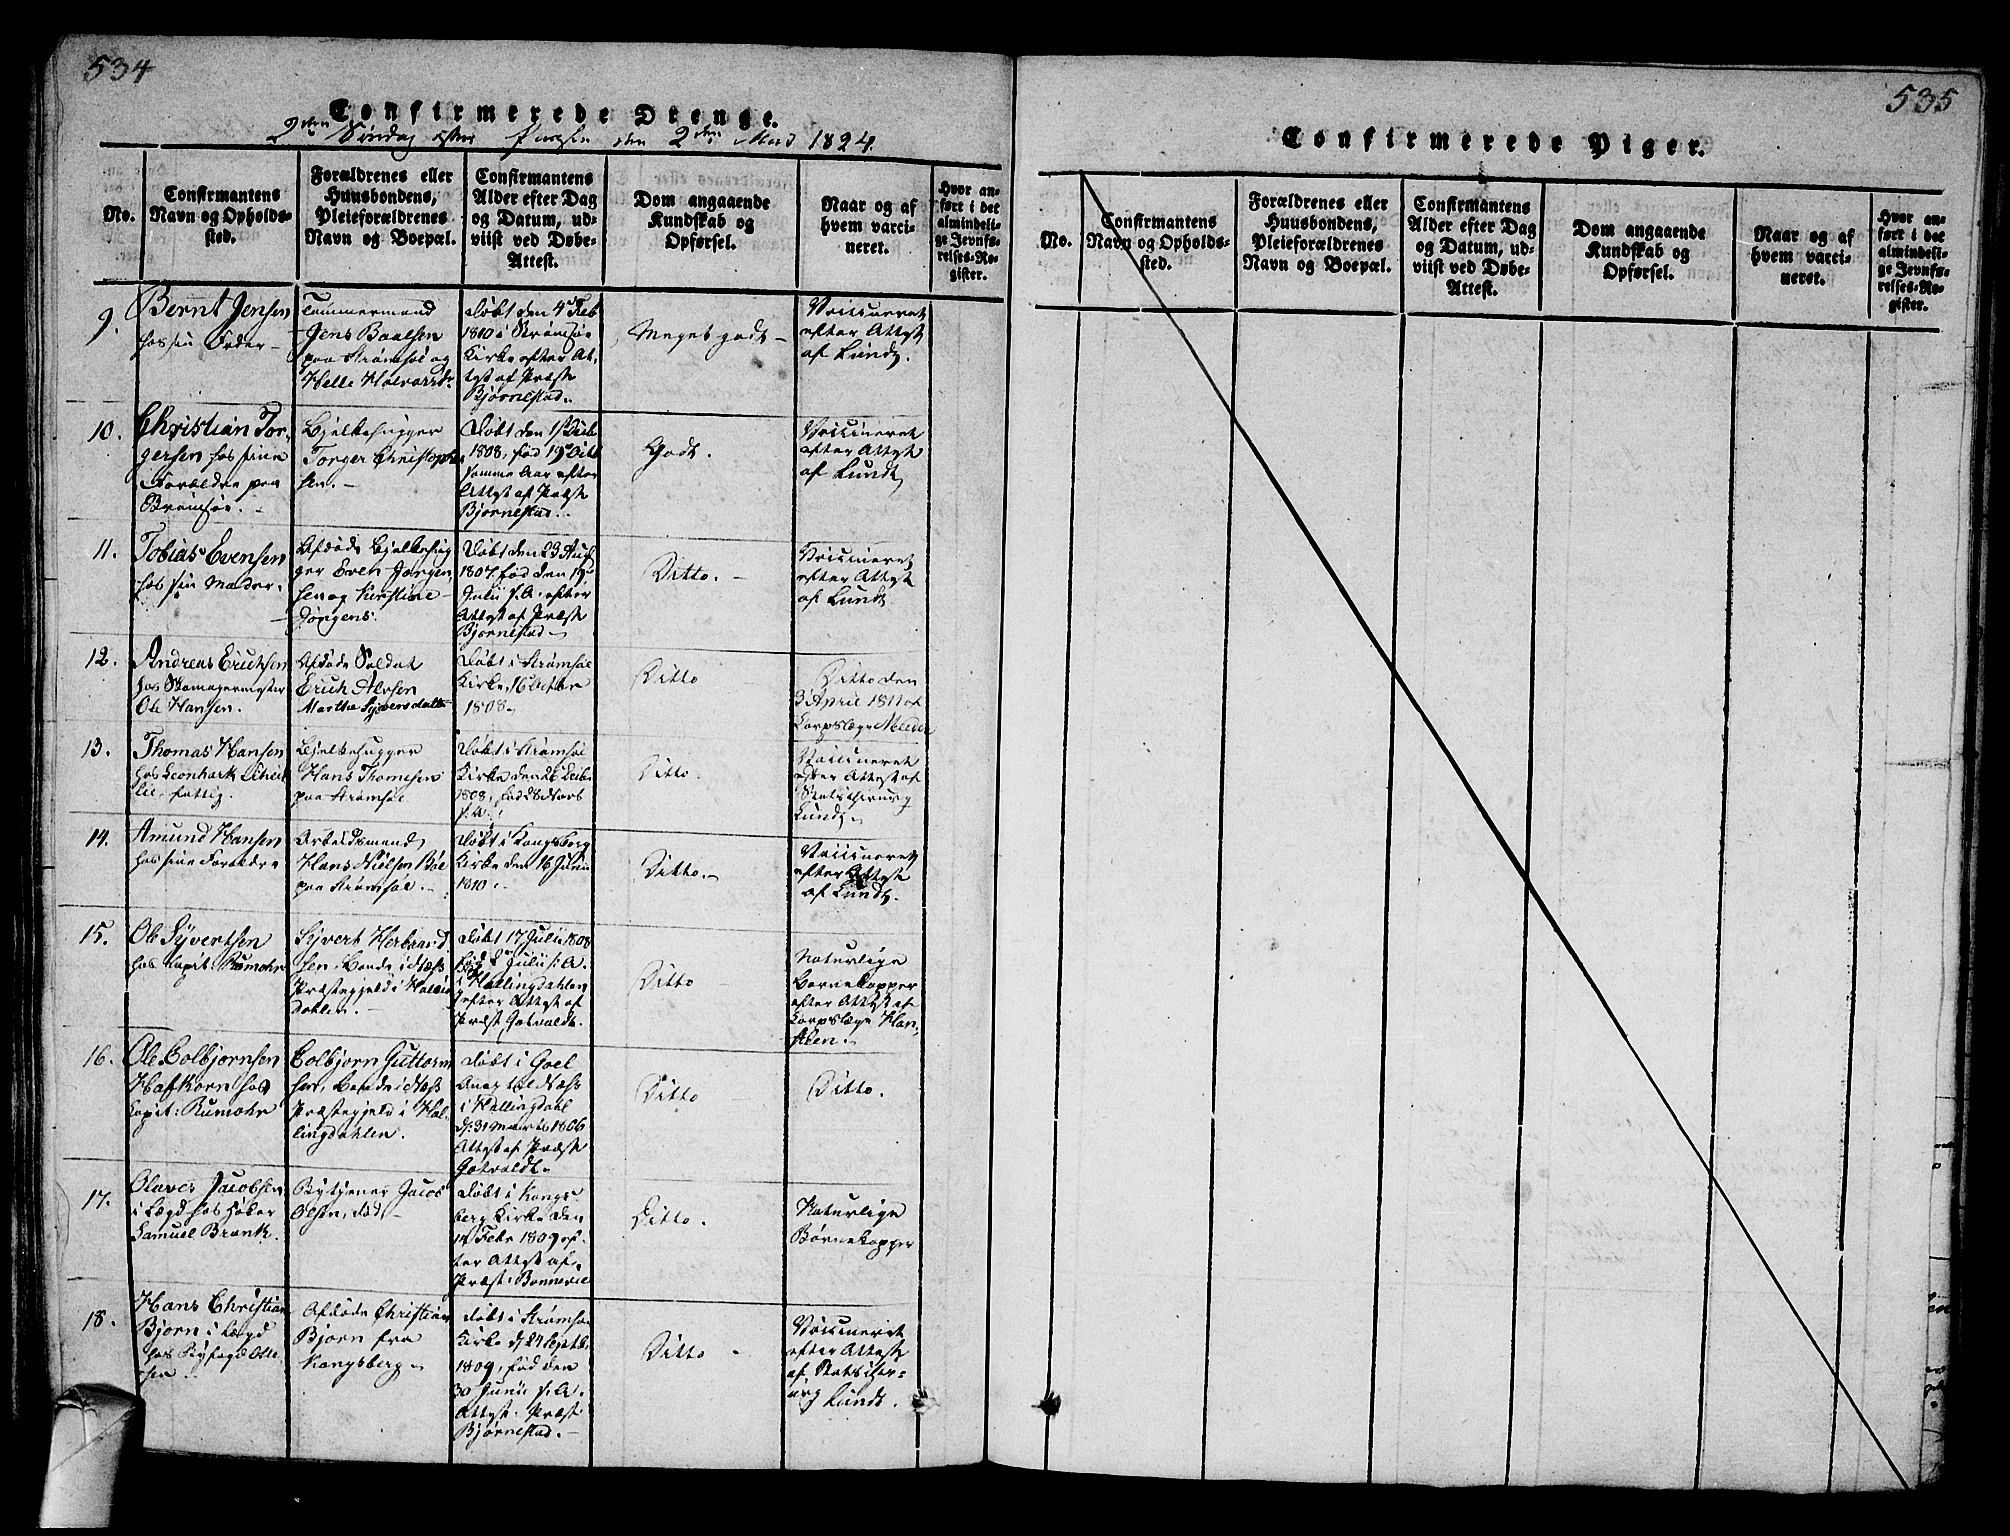 534
Confirmerede Drenge.
2den Søndag efter Paaske den 2den Maj 1824.
No.
Confirmantens
Navn og Opholds-
sted.
Forældrenes eller
Huusbondens,
Pleieforældrenes
Navn og Boepæl.
Confirmantens
Alder efter Dag
og Datum, ud-
viist ved Døbe-
Attest.
Dom angaaende
Kundskab og
Opførsel.
Naar og af
hvem varci-
neret.
Hvor an-
ført i det
almindeli-
ge Jevnfø-
relses-Re-
gister.
9.
Bernt Jensen
hos sin Fader -
Tømmermand
Jens Baalsen
paa Strømsøe og
Helle Halvorsdr.
Døbt den 4 Feb
1810 i Strømsøe
Kirke efter At-
test af Præst
Bjørnestad.
Meget godt -
Vaccineret
efter Attest
af Lundt.
10.
Christian Tor-
gersen hos sine
Forældre paa
Strømsøe. -
Bjelkehugger
Torger Christophe-
sen. -
Døbt den
1808, fød 19
samme Aar efter
Attest af Præst
Bjørnestad.
Godt.
Vaccineret
efter Attest
af Lundt
11.
Tobias Evensen
hos sin Moder. -
Afdøde Bjelkehug
ger Even Jørgen
sen og Kirstine
Jørgens:
Døbt den 23 Aug
1807, fød den 19
Julii s. A. efter
Attest af Præst
Bjørnestad -
Ditto. -
Vaccineret
efter Attest
af Lundt
12.
Andreas Erichsen
hos Skomagermester
Ole Hansen.
Afdøde Soldat
Erich Alvsen
Marthe Syversdatter
Døbt i Strømsøe
Kirke, 16 October
1808 -
Ditto
Ditto den
3 April 1811 af
Corpslæge Meeden
13.
Thomas Hansen
hos Leonhark
lie, fattig.
Bjelkehugger
Hans Thomesen
paa Strømsøe
Døbt i Strømsøe
Kirke den 26
1808, fød 28
s. A.
Ditto
Vaccineret
efter Attest af
Statschirurg
Lundt.
14.
Amund Hansen
hos sine Forældre
Arbeidsmand
Hans Nielsen Bøe
paa Strømsøe. -
Døbt i Kongsberg
Kirke den 16 Junii
1810.
Ditto. -
Vaccineret
efter Attest
af Lundt.
15.
Ole Syvertsen
hos Capit: Rumohr
Syvert Herbrand
sen, Bonde i Næss
Præstegjeld i Halling
dahlen. -
Døbt 17 Julii 1808
fød 2 Julii s: A.
i Hallingdahlen
efter Attest af
Præst Gotvaldt.
Ditto
Naturlige
Børnekopper
efter Attest af
Corpslæge Han-
sten. -
16.
Ole Colbjørnsen
Hafkorn hos
Capit: Rumohr
Colbjørn Guttorm
sen, Bonde i Næss
Præstegjeld i Hal-
lingdahlen.
Døbt i Goel
Anex til Næss
i Hallingdahl
d. 31 Marts 1806
Attest af Præst
Gotvaldt -
Ditto
Ditto.
17.
Olaves Jacobsen
i Lægd hos Høker
Samuel Brank.
Bytjener Jacob
Olsen, død -
Døbt i Kongs
berg Kirke den
14 Febr 1809 ef-
ter Attest af
Præst: Bonnevie
Ditto.
Naturlige
Børnekopper
18.
Hans Christian
Bjørn i Lægd
hos Byfogd Otte-
sen
Afdøde Christian
Bjørn fra
Kongsberg -
Døbt i Strømsøe
Kirke d. 24 Septb.
1809, fød den
30 Junii s. A.
Attest. Præst
Bjørnestad. -
Ditto -
Vaccineret
efter Attest
af Statschir-
urg Lundt.
535
Confirmerede Piger.
No.
Confirmantens
Navn og Opholds-
sted.
Forældrenes eller
Huusbondens,
Pleieforældrenes
Navn og Boepæl.
Confirmantens
Alder efter Dag
og Datum, ud-
viist ved Døbe-
Attest.
Dom angaaende
Kundskab og
Opførsel.
Naar og af
hvem varci-
neret.
Hvor an-
ført i det
almindeli-
ge Jevnfø-
relses-Re-
gister.